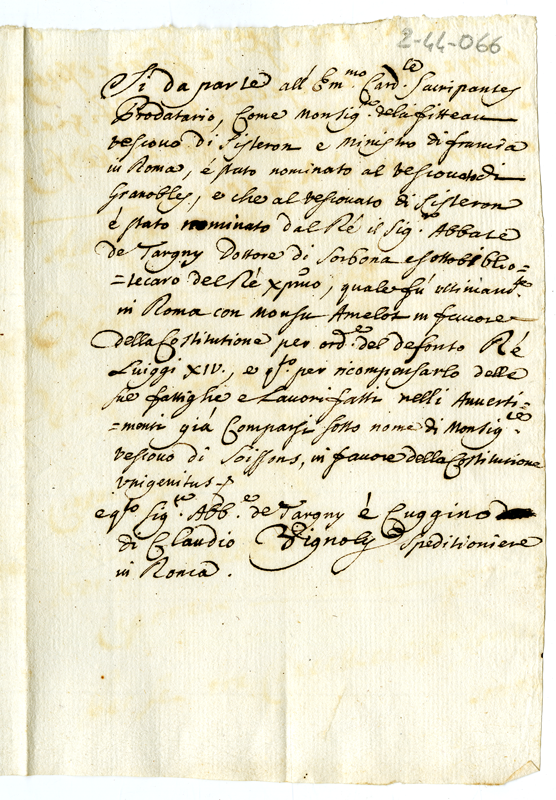 2-44-066
Si da parte all' Em.mo Card.le Sacripantes
Prodatario, Come Monsig.re de la fitteau
vescovo di Sisteron e Ministro di francia
in Roma, é stato nominato al vescovato di
Granobles, e che al vescovato di Sisteron
é stato nominato dal Ré il Sig.re Abbate
de Targny Dottore di Sorbona e sottobiblio=
=tecaro del Ré Xpmo, quale fú ultimam.te
in Roma con monsu Amelot in favore
della Costitutione per ord.e del defonto Ré
Luiggi XIV., e q.to per ricompensarlo delle
sue fattighe e Lavori fatti nelli Avverti=
=menti giá Comparsi sotto nome di Monsig.re
vescovo di Soissons, in favore della Costitutione
vnigenitus
e q.to Sig.re Abb.e de Targny é Cuggino
di Claudio Vignoly Speditioniere
in Roma.